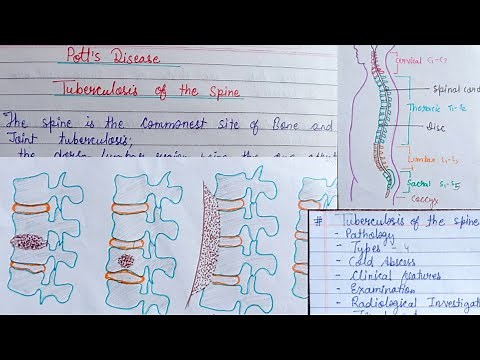 Pott's Disease
Tuberculosis of the spine
The spine is the commonest site of Bone and
Joint tuberculosis;
the dorso lumbar region being the one
Cervical C1-C7
Spinal cord
Thoracic T1-12
Disc
Lumbar
Sacral S1-S5
Coccyx
# Tuberculosis of the spine
- Pathology
- Types - 4
- Cold Abscess
- Clinical features
- Examination
- Radiological Investigat